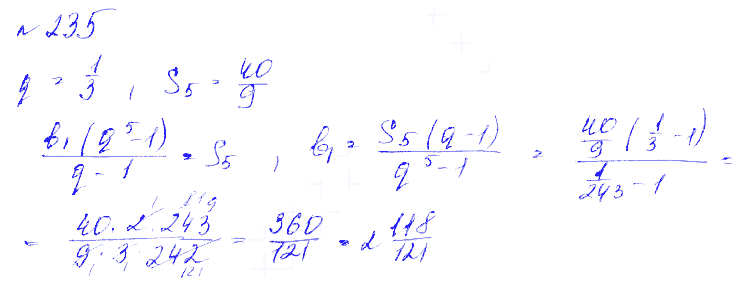 № 235
q = 1/3 , S₅ = 40/9
b₁(q⁵-1)/(q-1) = S₅ , b₁ = S₅(q-1)/(q⁵-1) = (40/9 (1/3 - 1))/(1/243 - 1) =
= (40·2·243)/(9·3·242) = 360/121 = 2 118/121